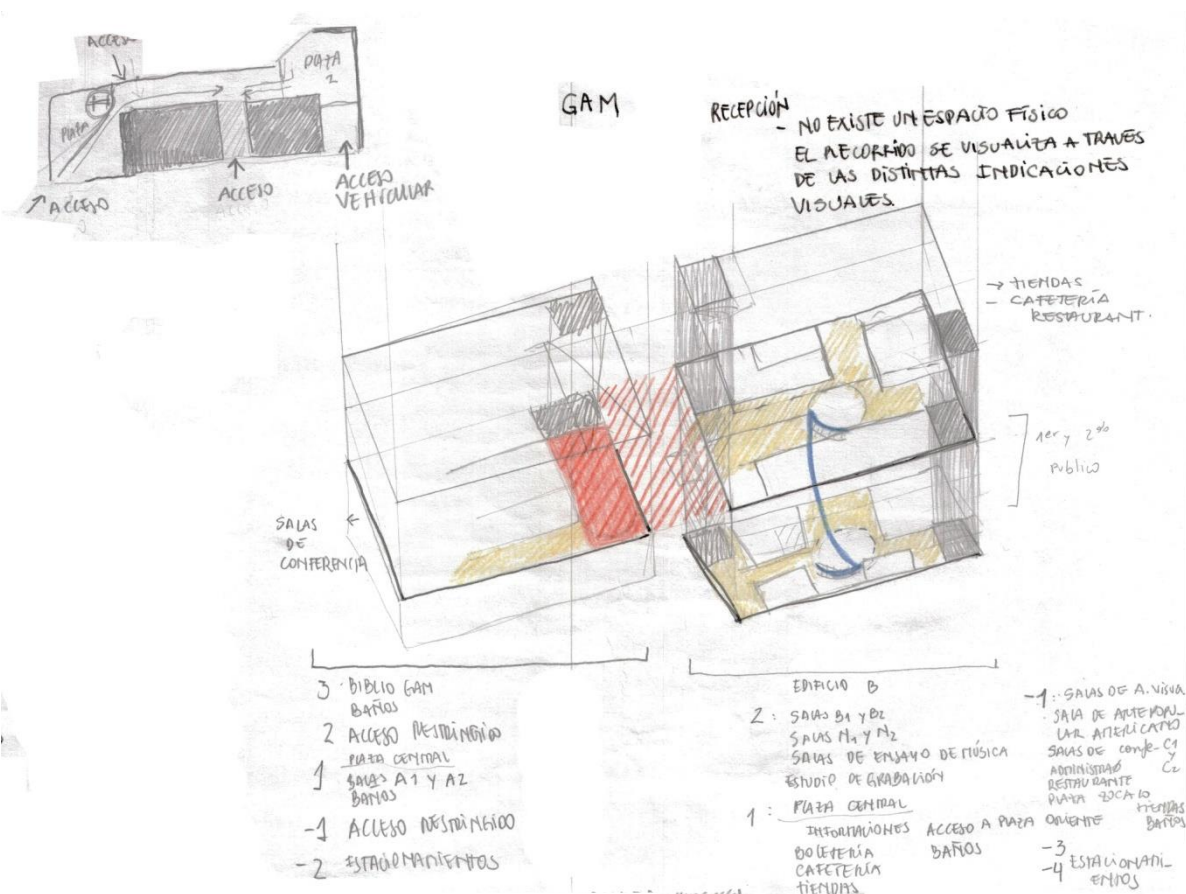 ACCESO
PLAZA
2
PLAZA
ACCESO
ACCESO
ACCESO
VEHICULAR
GAM
RECEPCIÓN
- NO EXISTE UN ESPACIO FÍSICO
EL RECORRIDO SE VISUALIZA A TRAVES
DE LAS DISTINTAS INDICACIONES
VISUALES.
→ TIENDAS
- CAFETERÍA
RESTAURANT.
1er y 2do
Publico
SALAS
DE
CONFERENCIA
3 · BIBLIO GAM
BAÑOS
2 ACCESO RESTRINGIDO
1 PLAZA CENTRAL
SALAS A1 Y A2
BAÑOS
-1 ACCESO RESTRINGIDO
-2 ESTACIONAMIENTOS
EDIFICIO B
2: SALAS B1 Y B2
SALAS N1 Y N2
SALAS DE ENSAYO DE MÚSICA
ESTUDIO DE GRABACIÓN
1: PLAZA CENTRAL
INFORMACIONES ACCESO A PLAZA ORIENTE
BOLETERÍA BAÑOS
CAFETERÍA
TIENDAS
-1: SALAS DE A. VISUA
· SALA DE ARTE POPU-
LAR AMERICANO
SALAS DE confe- C1
y
ADMINISTRAC C2
RESTAURANTE
PLAZA ZOCALO
TIENDAS
BAÑOS
-3
-4 ESTACIONAMI-
ENTOS